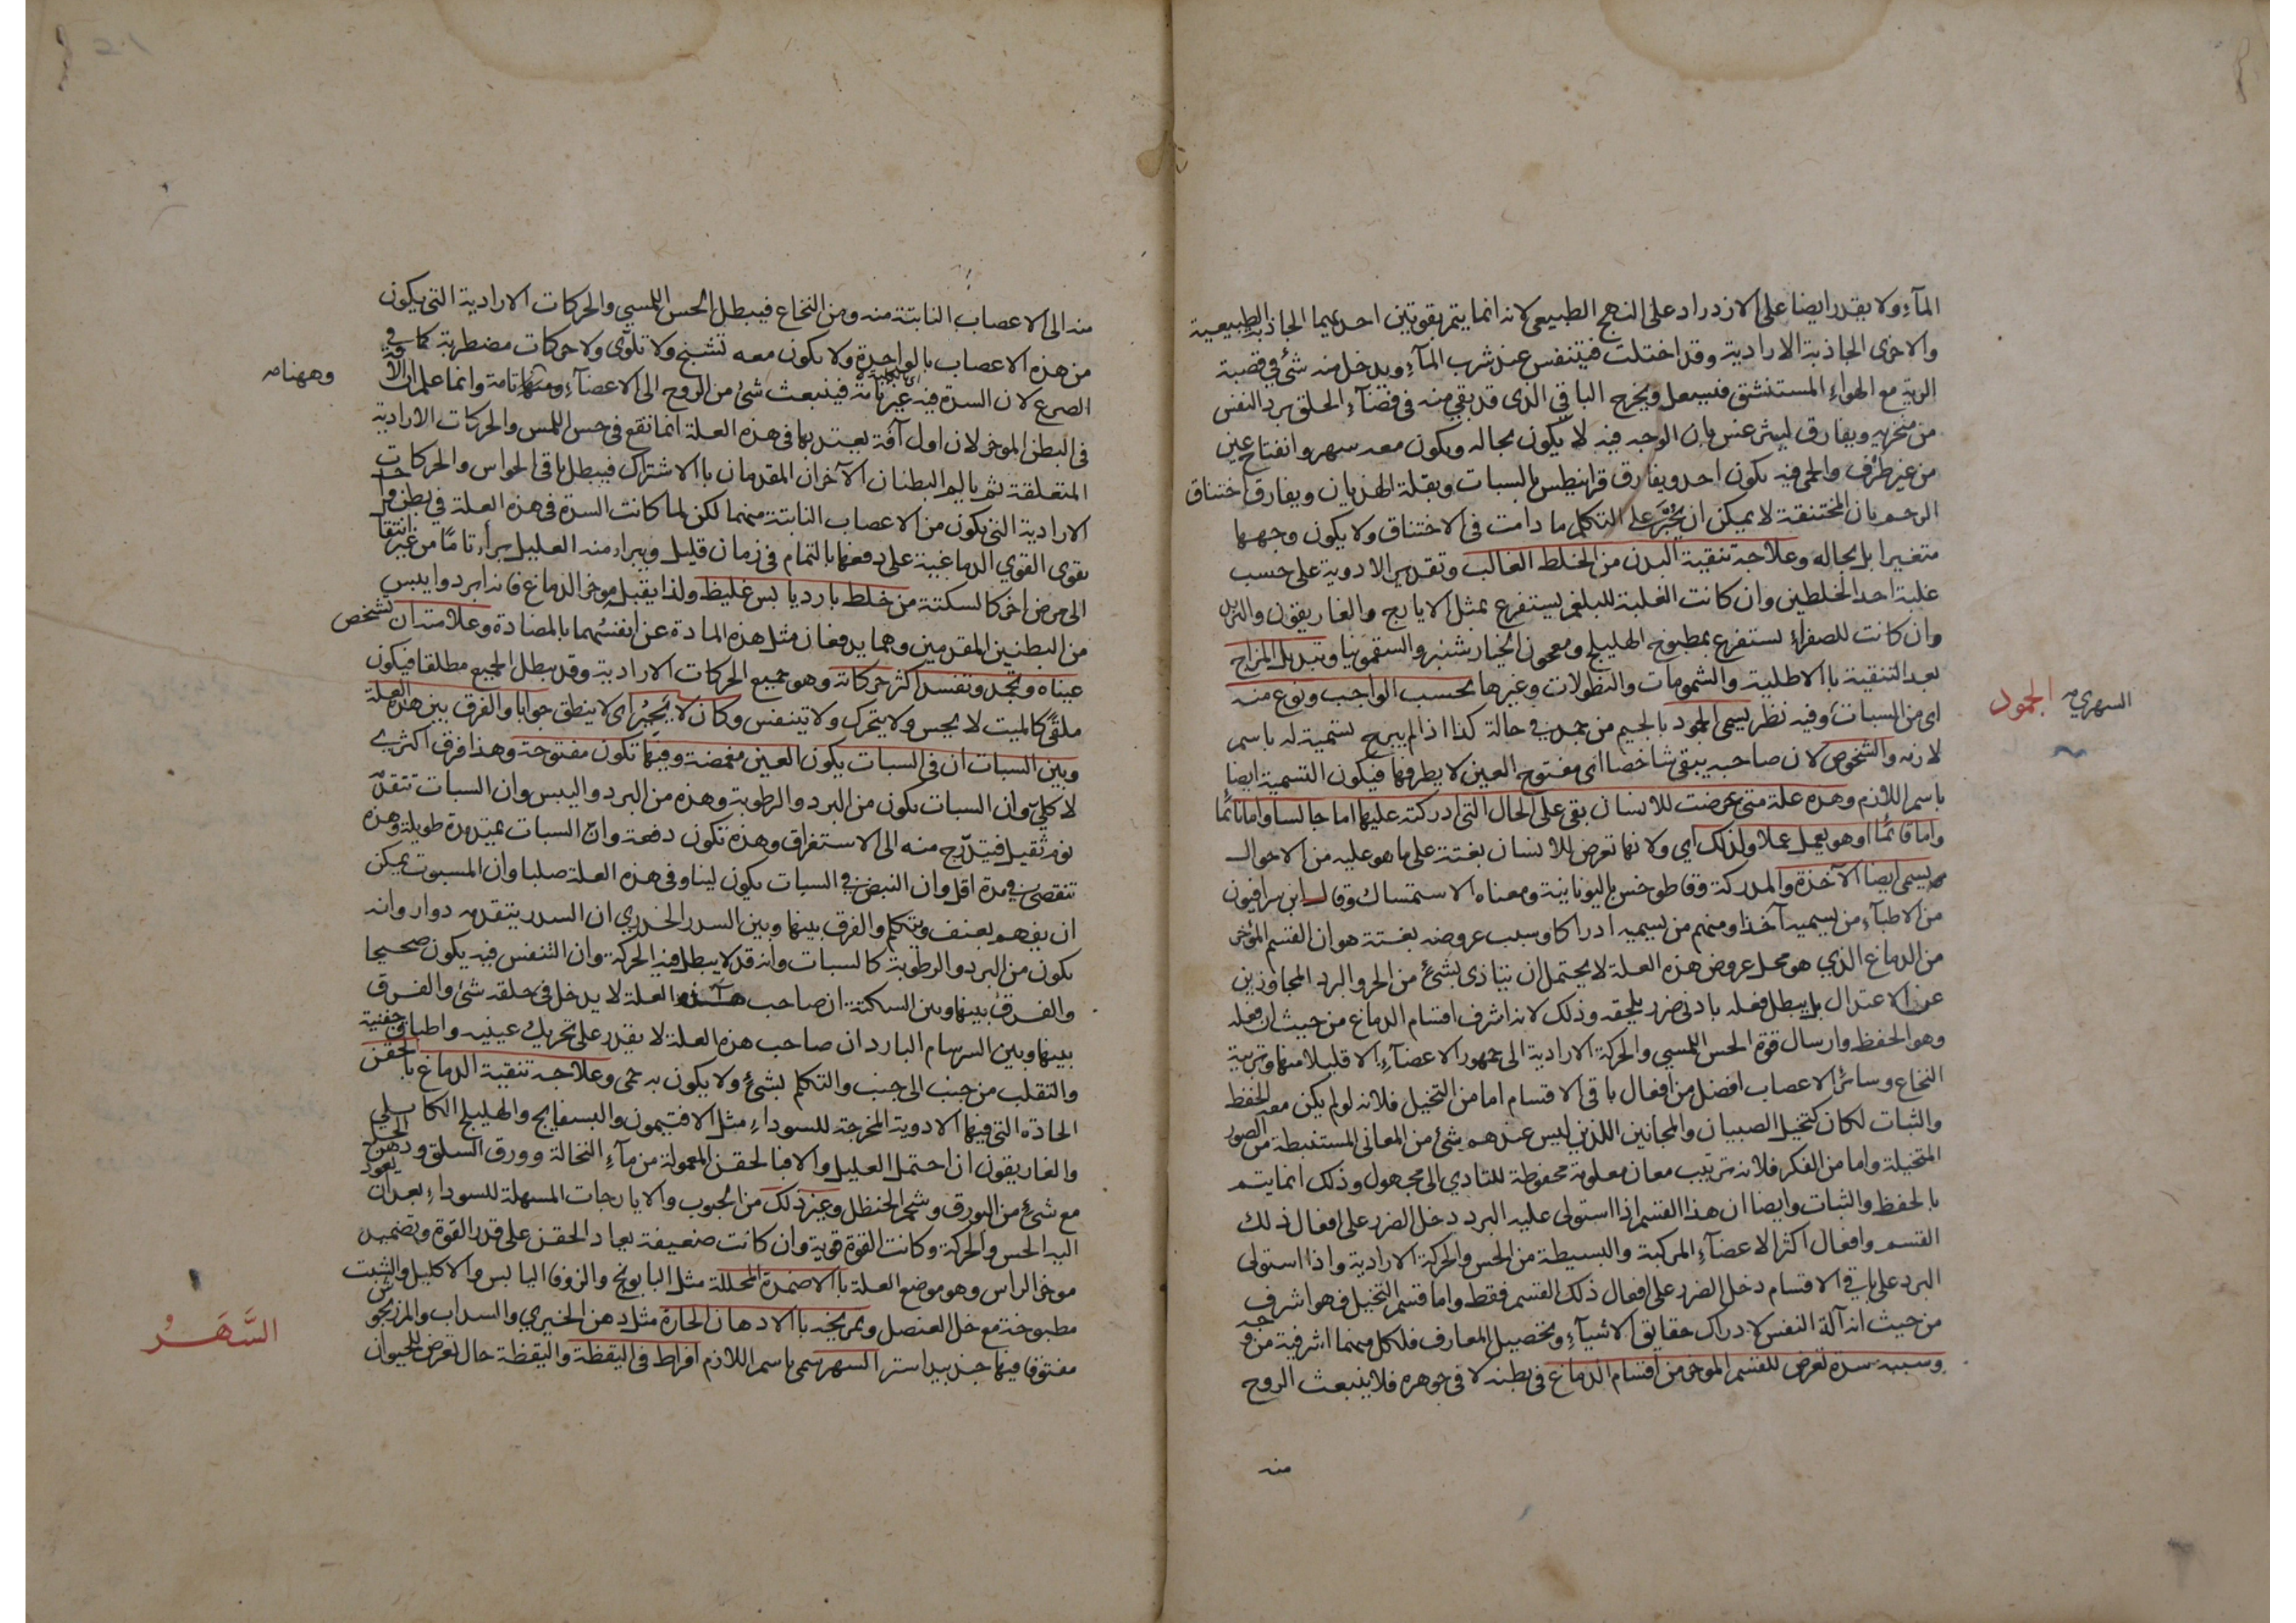 المآء ولا يقدر ايضا على الازدراد على النهج الطبيعى لانه انما يتم بقوتين احديهما الجاذبة الطبيعية
والاخرى الجاذبة الارادية وقد اختلت فيتنفس عند شرب المآء ويدخل منه شئ فى قصبة
الرية مع الهواء المستنشق فيسعل ويخرج الباقى الذى قد بقى منه فى فضآء الحلق برد النفس
من منخريه ويفارق ليثرغس بان الوجه فيه لا يكون بحاله ويكون معه سهر وانفتاح عين
من غير طرف والحمى فيه يكون احد ويفارق قرانيطس بالسبات وبقلة الهذيان ويفارق اختناق
الرحم بان المختنقة لا يمكن ان يجبر على التكلم ما دامت فى الاختناق ولا يكون وجهها
متغيرا بل بحاله وعلاجه تنقية البدن من الخلط الغالب وتقديم الادوية على حسب
غلبة احد الخلطين وان كانت الغلبة للبلغم يستفرغ بمثل الايارج والغاريقون والتربد
وان كانت للصفراء يستفرغ بمطبوخ الهليلج ومعجون الخيارشنبر والسقمونيا وتبديل المزاج
بعد التنقية باالاطلية والشمومات والنطولات وغيرها بحسب الواجب ونوع منه
السهرى الجمود
اى من السبات وفيه نظر يسمى الجمود بالجيم من جمد فى حالة كذا اذا لم يبرح تسمية له باسم
لازمه والشخوص لان صاحبه يبقى شاخصا اى مفتوح العين لا يطرفها فيكون التسمية ايضا
باسم اللازم وهذه علة متى عرضت للانسان بقى على الحال التى ادركته عليها اما جالسا واما نائما
واما قائما او هو يعمل عملا ولذلك اى ولانها تعرض للانسان بغتة على ما هو عليه من الاحوال
يسمى ايضا الآخذة والمدركة وقاطوخس باليونانية ومعناه الاستمساك وقال ابن سرافيون
من الاطبآء من يسميه آخذا ومنهم من يسميه ادراكا وسبب عروضه بغتة هو ان القسم المؤخر
من الدماغ الذى هو محل عروض هذه العلة لا يحتمل ان يتاذى بشئ من الحر والبرد المجاوزين
عن الاعتدال بل يبطل فعله بادنى ضرر يلحقه وذلك لانه اشرف اقسام الدماغ من حيث ان فعله
وهو الحفظ وارسال قوة الحس اللمسى والحركة الارادية الى جمهور الاعضآء الا قليلا منها وتربية
النخاع وسائر الاعصاب افضل من افعال باقى الاقسام اما من التخيل فلانه لو لم يكن معه الحفظ
والثبات لكان كتخيل الصبيان والمجانين اللذين ليس عندهم شئ من المعانى المستنبطة من الصور
المتخيلة واما من الفكر فلانه ترتيب معان معلومة محفوظة للتادى الى مجهول وذلك انما يتم
بالحفظ والثبات وايضا ان هذا القسم اذا استولى عليه البرد دخل الضرر على افعال ذلك
القسم وافعال اكثر الاعضآء المركبة والبسيطة من الحس والحركة الارادية واذا استولى
البرد على باقى الاقسام دخل الضرر على افعال ذلك القسم فقط واما قسم التخيل فهو اشرف
من حيث انه آلة النفس لادراك حقايق الاشيآء وتحصيل المعارف فلكل منهما اشرفية من وجه
وسببه سدة تعرض للقسم الموخر من اقسام الدماغ فى بطنه لا فى جوهره فلا ينبعث الروح
منه
منه الى الاعصاب النابتة منه ومن النخاع فيبطل الحس اللمسى والحركات الارادية التى يكون
من هذه الاعصاب بالواحدة ولا يكون معه تشنج ولا تلوى ولا حركات مضطربة كما فى
الصرع لان السدة فيه غير تامة فينبعث شئ من الروح الى الاعضآء وههنا تامة وانما علم ان الآفة
وههنا
فى البطن الموخر لان اول آفة يعتد بها فى هذه العلة انما تقع فى حس اللمس والحركات الارادية
المتعلقة ثم يالم البطنان الآخران المقدمان باالاشتراك فيبطل باقى الحواس والحركات
الارادية التى يكون من الاعصاب النابتة منهما لكن لما كانت السدة فى هذه العلة فى بطن واحد
يقوى القوى الدماغية على دفعها بالتمام فى زمان قليل ويبراء منه العليل برأ تاما من غير انتقال
الى مرض اخر كالسكتة من خلط بارد يابس غليظ ولذا يقبله موخر الدماغ فانه ابرد وايبس
من البطنين المقدمين وهما يدفعان مثل هذه المادة عن انفسهما بالمضادة وعلامته ان تشخص
عيناه ويجمد وتفسد اكثر حركاته وهو جميع الحركات الارادية وقد يبطل الجميع مطلقا فيكون
ملقى كالميت لا يحس ولا يتحرك ولا يتنفس وكان لا يجيبر اى لا ينطق جوابا والفرق بين هذه العلة
وبين السبات ان فى السبات يكون العين مغمضة وفيها تكون مفتوحة وهذا فرق اكثرى
لا كلى وان السبات يكون من البرد والرطوبة وهذه من البرد واليبس وان السبات تتقدمه
نوم ثقيل فيتدرج منه الى الاستغراق وهذه تكون دفعة وان السبات يمتد مدة طويلة وهذه
تنقضى فى مدة اقل وان النبض فى السبات يكون لينا وفى هذه العلة صلبا وان المسبوت يمكن
ان يفهم بعنف ويتكلم والفرق بينها وبين السدر الخدرى ان السدر يتقدمه دوار وانه
يكون من البرد والرطوبة كالسبات وانه قد لا يبطل فيه الحركة وان التنفس فيه يكون صحيحا
والفرق بينها وبين السكتة ان صاحب هذه العلة لا يدخل فى حلقه شئ والفرق
بينها وبين السرسام البارد ان صاحب هذه العلة لا يقدر على تحريك عينيه واطباق جفنيه
والتقلب من جنب الى جنب والتكلم بشئ ولا يكون به حمى وعلاجه تنقية الدماغ بالحقن
الحادة التى فيها الادوية المخرجة للسوداء مثل الافتيمون والبسفايج والهليلج الكابلى
والغاريقون ان احتمل العليل والا فبالحقن المعمولة من مآء النخالة وورق السلق ودهن الحل
مع شئ من البورق وشحم الحنظل وغير ذلك من الحبوب والايارجات المسهلة للسوداء بعد ان يعود
اليه الحس والحركة وكانت القوة قوية وان كانت ضعيفة يعاد الحقن على قدر القوة وتضميد
موخر الراس وهو موضع العلة باالاضمدة المحللة مثل البابونج والزوفا اليابس والاكليل والشبت
مطبوخة مع خل العنصل وتمريخه باالادهان الحارة مثل دهن الخيرى والسداب والمرزنجوش
مفتوقا فيها جندبيداستر السهر سمى باسم اللازم افراط فى اليقظة واليقظة حال تعرض للحيوان
السَّهَرُ